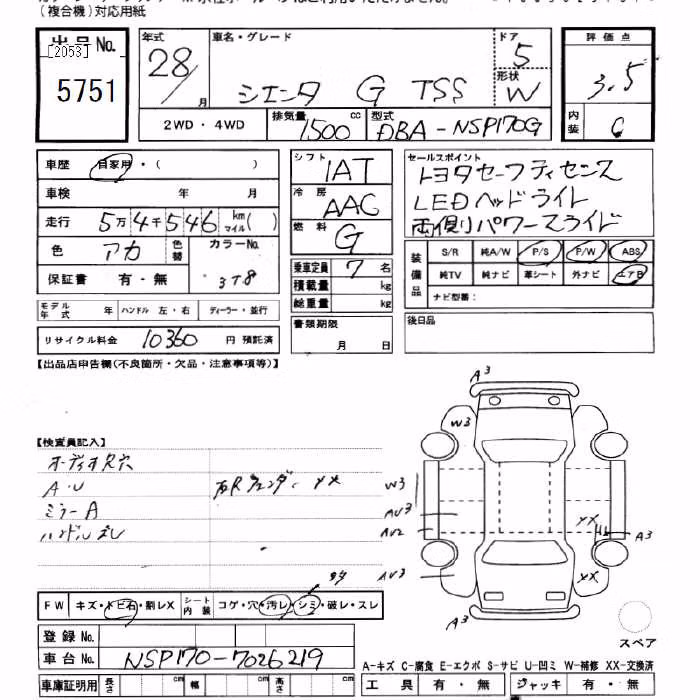 (複合機)対応用紙
出品No.
[2053]
5751
年式
28/月
車名・グレード
シエンタ G TSS
ドア
5
形状
W
評価点
3.5
内装
C
2WD・4WD
排気量
1500 cc
型式
DBA-NSP170G
車歴 自家用・( )
車検 年 月
走行 5万4千546 km マイル( )
色 アカ 色替 カラーNo. 3T8
保証書 有・無
シフト IAT
冷房 AAC
燃料 G
乗車定員 7名
積載量 kg
総重量 kg
書類期限
月 日
セールスポイント
トヨタセーフティセンス
LEDヘッドライト
両側パワースライド
装備品
S/R 純A/W P/S P/W ABS
純TV 純ナビ 革シート 外ナビ エアB
ナビ型番:
後日品
モデル年式 年 ハンドル 左・右 ディーラー・並行
リサイクル料金 10360 円 預託済
【出品店申告欄(不良箇所・欠品・注意事項等)】
【検査員記入】
オーディオ穴
A・U
ミラーA
ハンドルズレ
右Rフェンダー XX
A3
W3
W3
AU3
AU2
AU3
XX
A3
XX
A3
FW キズ・トビ石・割レX
シート内装 コゲ・穴・汚レ・シミ・破レ・スレ
登録No.
車台No. NSP170-7026219
車庫証明用 長さ cm 幅 cm 高さ cm
スペア
A-キズ C-腐食 E-エクボ S-サビ U-凹ミ W-補修 XX-交換済
工具 有・無 ジャッキ 有・無